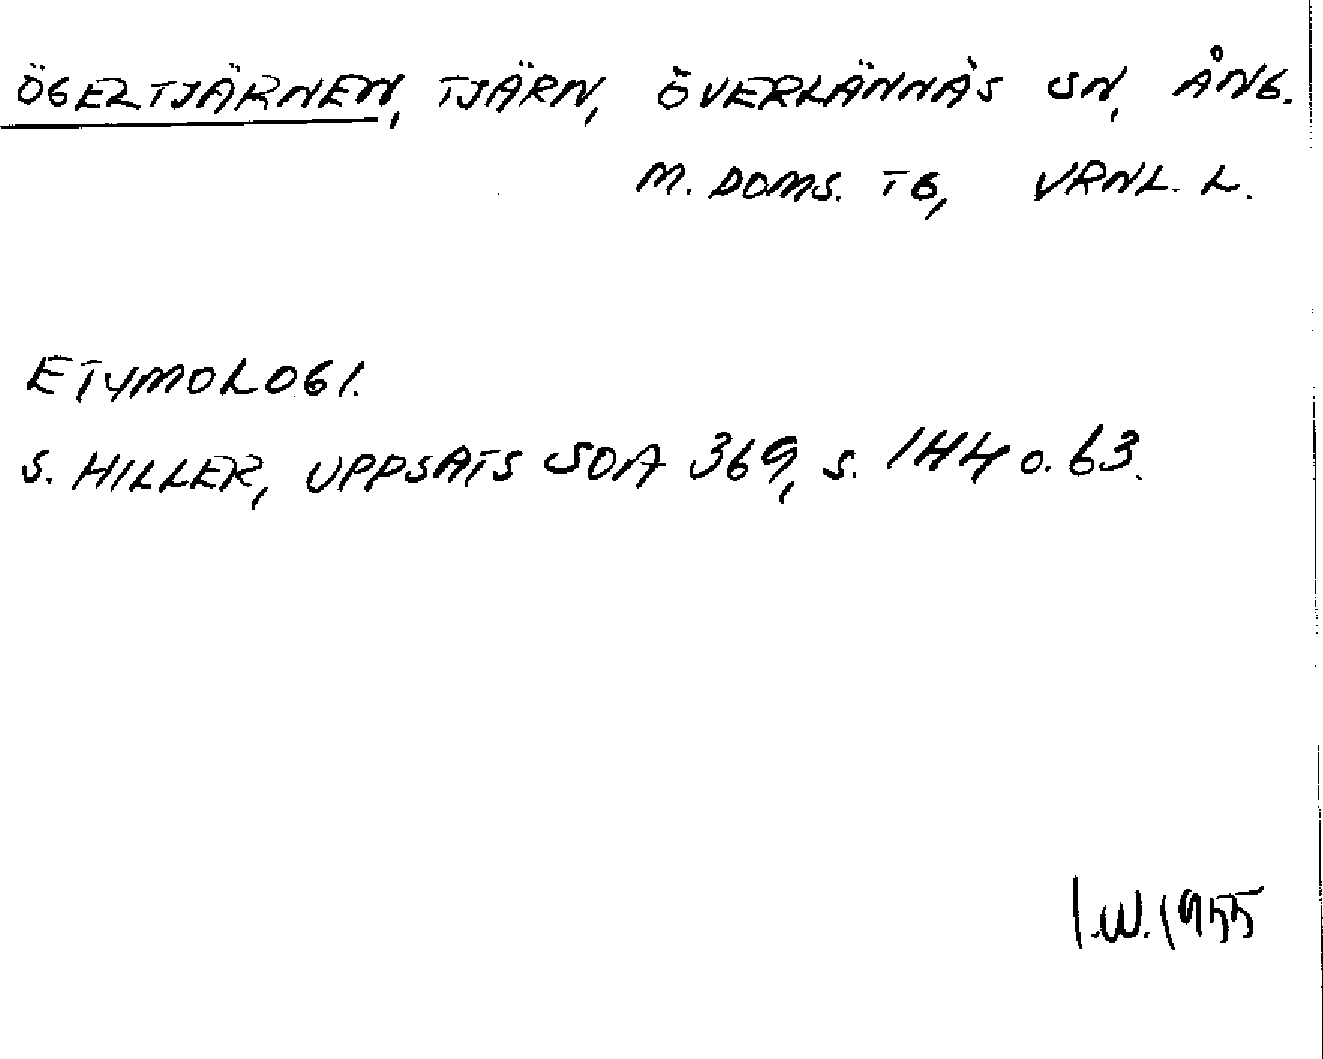 ÖGELTJÄRNEN, TJÄRN, ÖVERLÄNNÄS SN, ÅNG.
M. DOMS. TG, VRNL. L.
ETYMOLOGI.
S. HILLER, UPPSATS SOA 369, S. 144 o. 63.
I.W. 1955